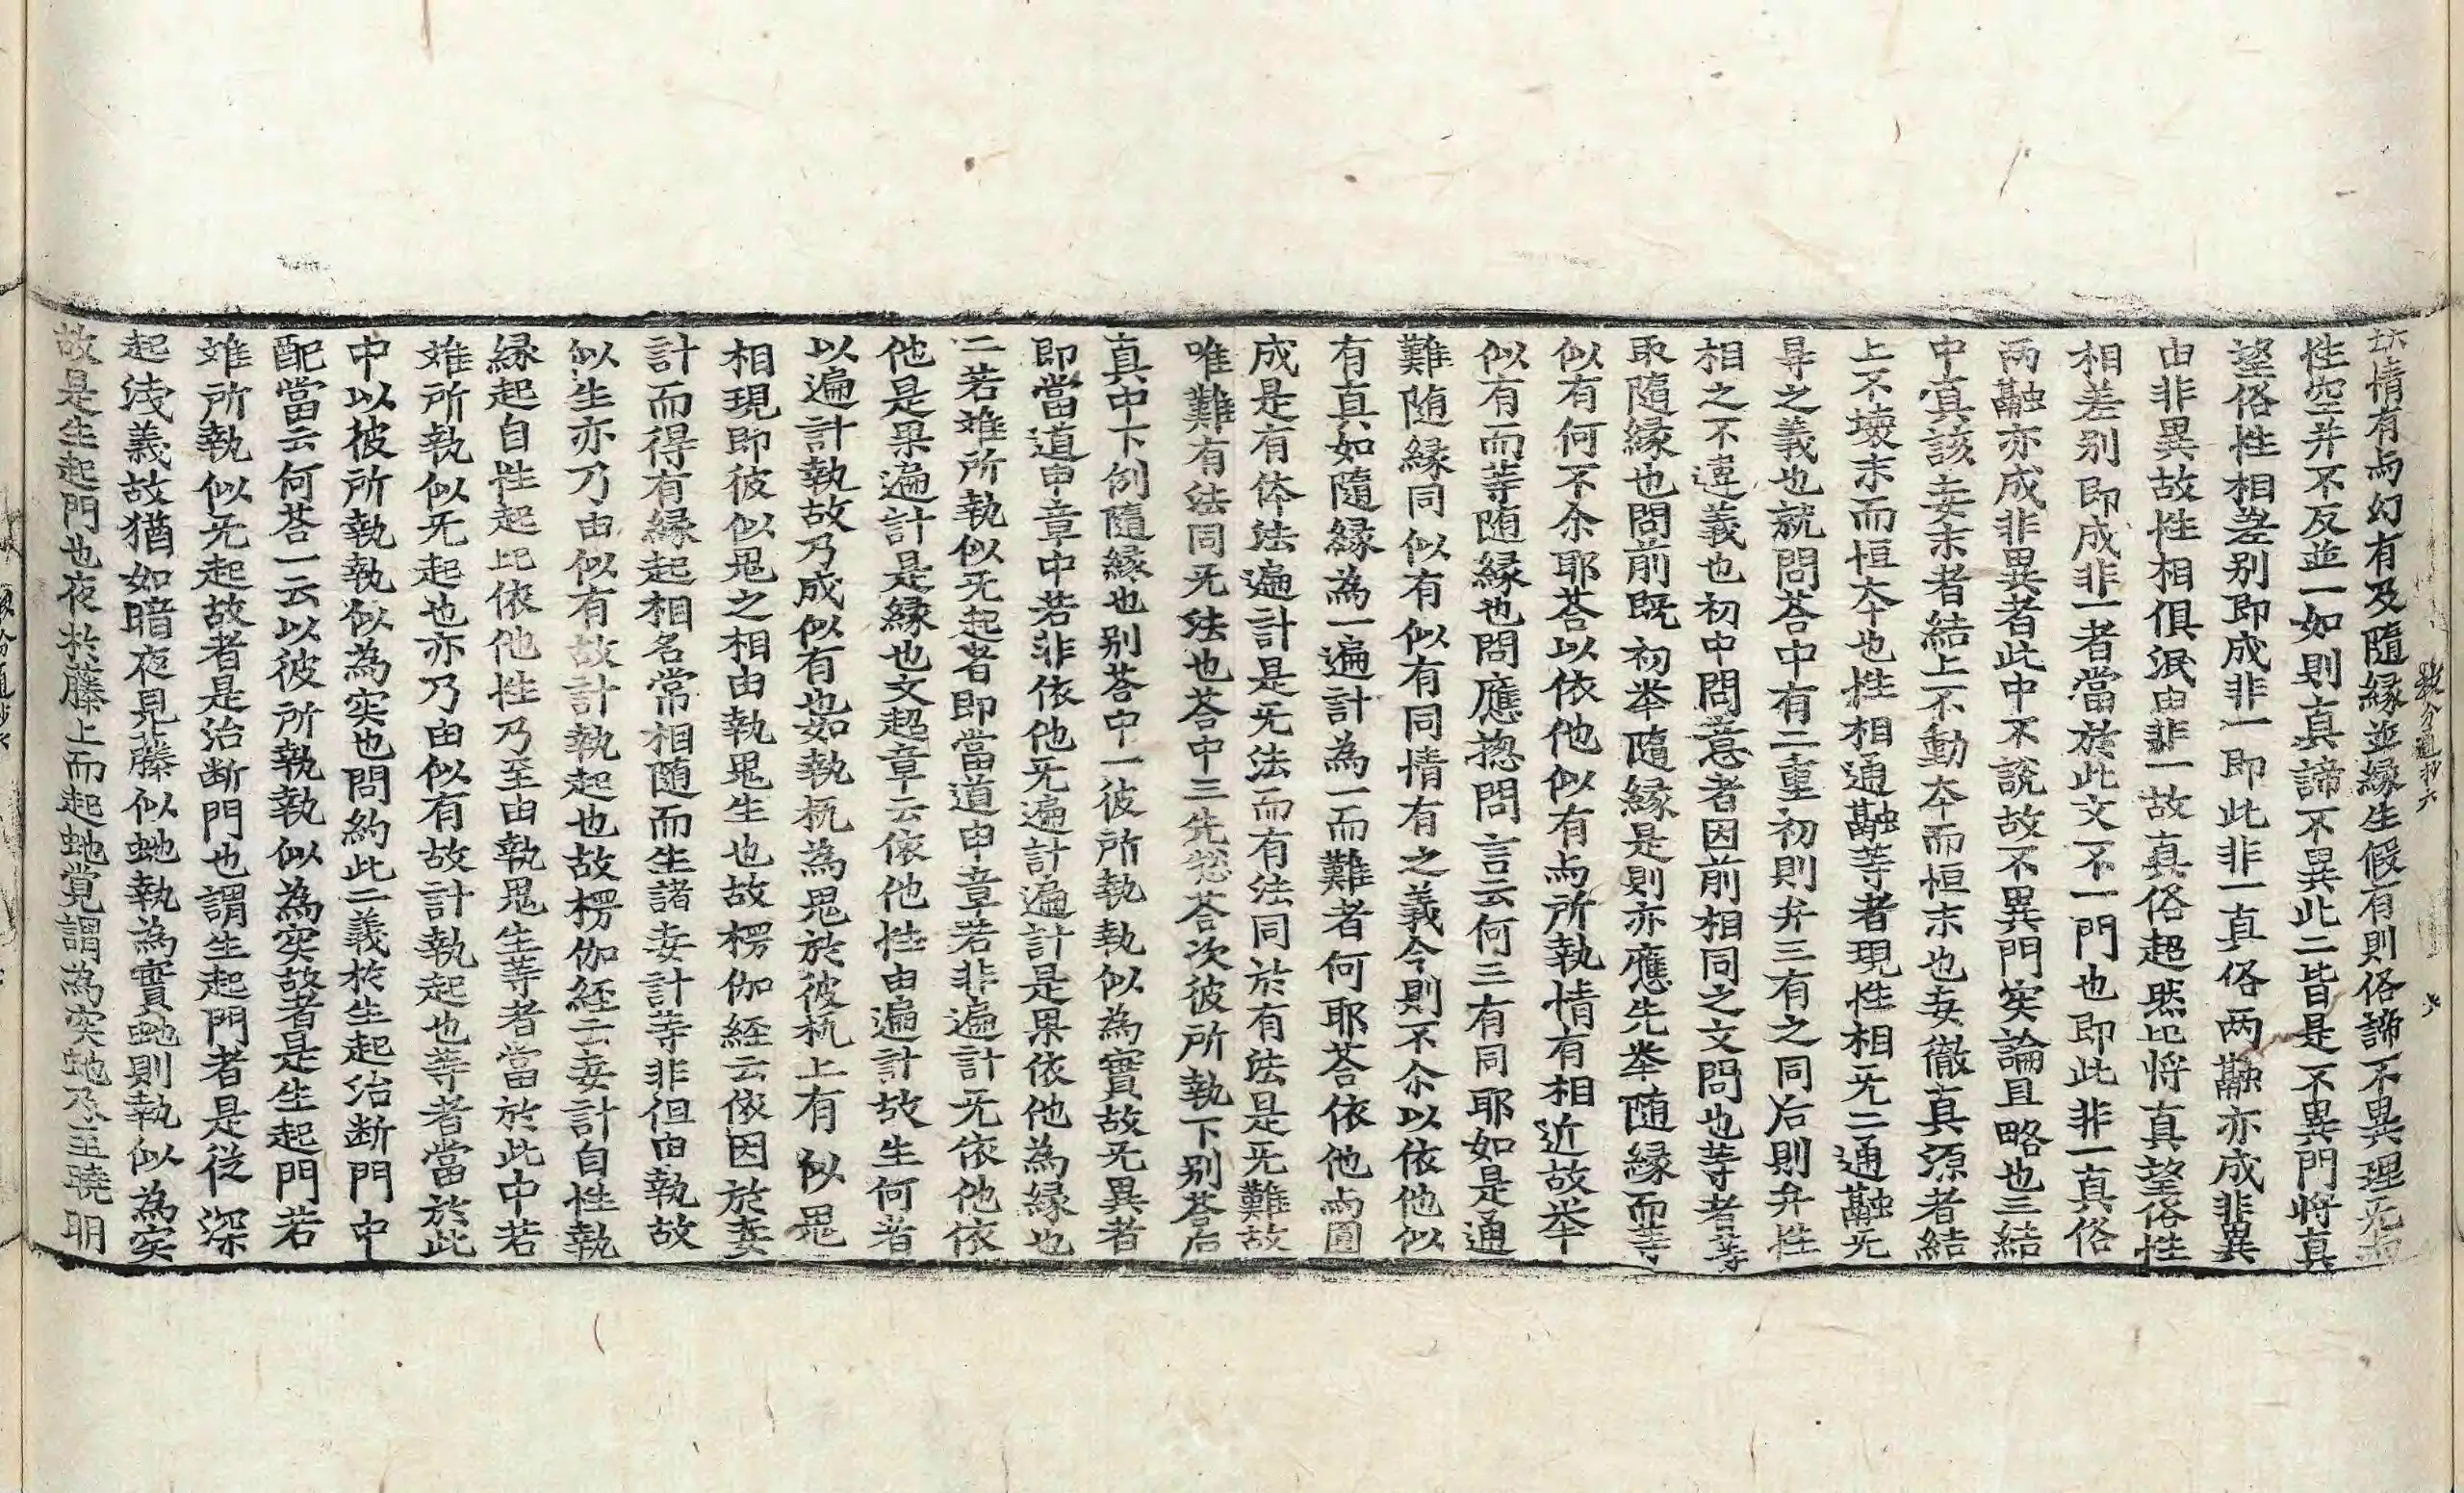 情有与幻有及隨縁並縁生假有則俗諦不異理无
性空并不反並一如則真諦不異此二皆是不異門將真
望俗性相差别即成非一即此非一真俗两融亦成非異
由非異故性相俱泯由非一故真俗超然比將真望俗性
相差别即成非一者當於此文不一門也即此非一真俗
两融亦成非異者此中不說故不異門实論且略也三結
中真該妄末者結上不動夲而恒末也妄徹真源者結
上不壊末而恒夲也性相通融等者現性相无二通融无
㝵之義也就問荅中有二重初則弁三有之同后則弁性
相之不違義也初中問意者因前相同之文問也等者等
取隨縁也問前既初举隨縁是則亦應先举随縁而等
似有何不尒耶荅以依他似有与所執情有相近故举
似有而等随縁也問應揔問言云何三有同耶如是通
難随縁同似有似有同情有之義今則不尒以依他似
有真如隨縁為一遍計為一而難者何耶荅依他与圓
成是有体法遍計是无法而有法同於有法是无難故
唯難有法同无法也荅中三先揔荅次彼所執下别荅后
真中下例隨縁也别荅中一彼所執執似為實故无異者
即當道申章中若非依他无遍計遍計是果依他為縁也
二若雖所執似无起者即當道申章若非遍計无依他依
他是果遍計是縁也文超章云依他性由遍計故生何者
以遍計執故乃成似有也如執杌為鬼於彼杌上有似鬼
相現即彼似鬼之相由執鬼生也故楞伽経云依因於妄
計而得有縁起相名常相随而生諸妄計等非但由執故
似生亦乃由似有故計執起也故楞伽経云妄計自性執
縁起自性起比依他性乃至由執鬼生等者當於此中若
雖所執似无起也亦乃由似有故計執起也等者當於此
中以彼所執執似為实也問約此二義於生起治断門中
配當云何荅一云以彼所執執似為实故者是生起門若
雖所執似无起故者是治断門也謂生起門者是從深
起浅義故猶如暗夜見藤似虵執為實虵則執似為实
故是生起門也夜於藤上而起虵覚謂為实虵乃至曉明